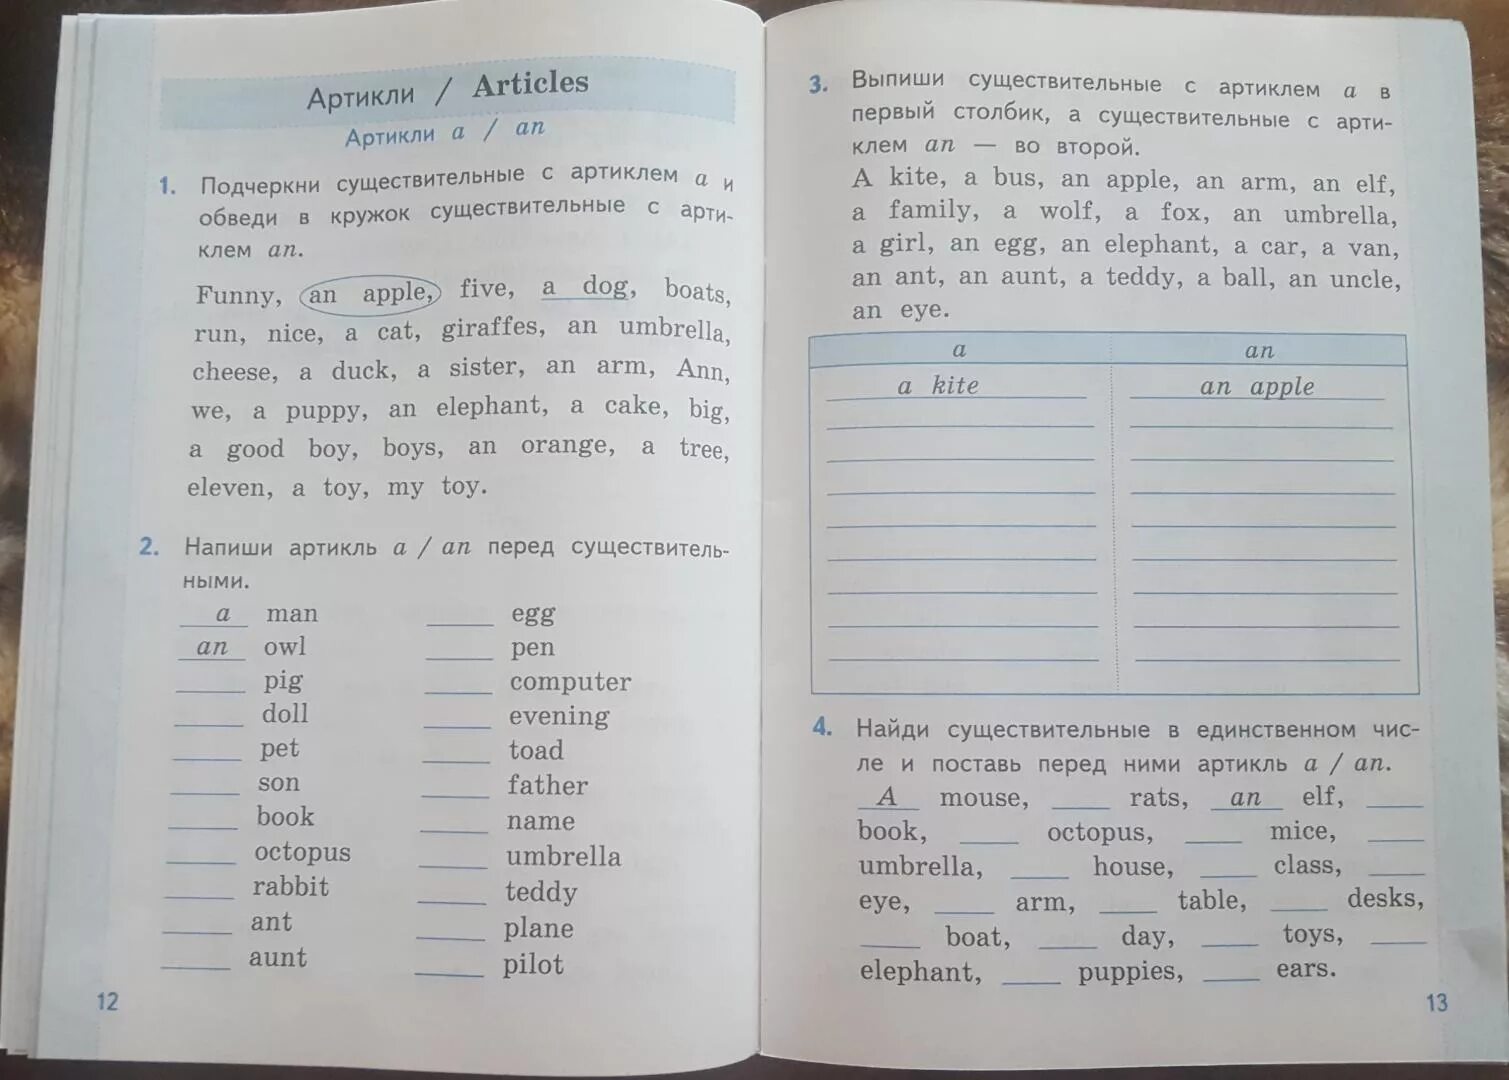 Артикли / Articles
Артикли a / an
1. Подчеркни существительные с артиклем a и
обведи в кружок существительные с арти-
клем an.
Funny, an apple, five, a dog, boats,
run, nice, a cat, giraffes, an umbrella,
cheese, a duck, a sister, an arm, Ann,
we, a puppy, an elephant, a cake, big,
a good boy, boys, an orange, a tree,
eleven, a toy, my toy.
2. Напиши артикль a / an перед существитель-
ными.
a man
an owl
pig
doll
pet
son
book
octopus
rabbit
ant
aunt
egg
pen
computer
evening
toad
father
name
umbrella
teddy
plane
pilot
12
3. Выпиши существительные с артиклем a в
первый столбик, а существительные с арти-
клем an — во второй.
A kite, a bus, an apple, an arm, an elf,
a family, a wolf, a fox, an umbrella,
a girl, an egg, an elephant, a car, a van,
an ant, an aunt, a teddy, a ball, an uncle,
an eye.
a an
a kite an apple
4. Найди существительные в единственном чис-
ле и поставь перед ними артикль a / an.
A mouse, ____ rats, an elf, ____
book, ____ octopus, ____ mice, ____
umbrella, ____ house, ____ class, ____
eye, ____ arm, ____ table, ____ desks,
____ boat, ____ day, ____ toys, ____
elephant, ____ puppies, ____ ears.
13